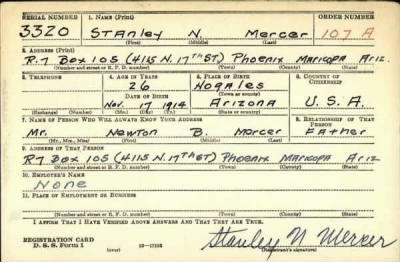 SERIAL NUMBER 1. NAME (Print) ORDER NUMBER
3320 STANLEY N. MERCER 107 A
(First) (Middle) (Last)
2. ADDRESS (Print)
R.7 BOX 105 (4115 N. 17TH ST) PHOENIX MARICOPA ARIZ.
(Number and street or R. F. D. number) (Town) (County) (State)
3. TELEPHONE 4. AGE IN YEARS 5. PLACE OF BIRTH 6. COUNTRY OF CITIZENSHIP
26 NOGALES
DATE OF BIRTH (Town or county)
NOV. 17 1914 ARIZONA U.S.A.
(Exchange) (Number) (Mo.) (Day) (Yr.) (State or country)
7. NAME OF PERSON WHO WILL ALWAYS KNOW YOUR ADDRESS 8. RELATIONSHIP OF THAT PERSON
MR. NEWTON B. MERCER FATHER
(Mr., Mrs., Miss) (First) (Middle) (Last)
9. ADDRESS OF THAT PERSON
R7 BOX 105 (4115 N. 17TH ST) PHOENIX MARICOPA ARIZ
(Number and street or R. F. D. number) (Town) (County) (State)
10. EMPLOYER'S NAME
NONE
11. PLACE OF EMPLOYMENT OR BUSINESS
(Number and street or R. F. D. number) (Town) (County) (State)
I AFFIRM THAT I HAVE VERIFIED ABOVE ANSWERS AND THAT THEY ARE TRUE.
REGISTRATION CARD
D. S. S. Form 1 (over) Stanley N Mercer
(Registrant's signature)